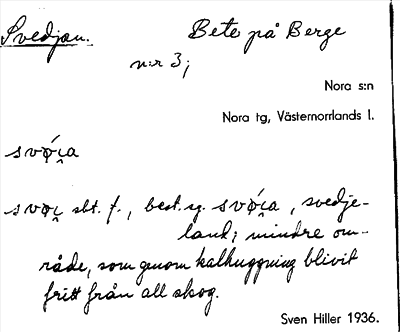 Svedjan. Bete på Berge
n:r 3;
Nora s:n
Nora tg, Västernorrlands l.
svǿi̯a
svøi̯ sbt. f., best. sg. svǿi̯a, svedje-
land; mindre om-
råde, som genom kalhuggning blivit
fritt från all skog.
Sven Hiller 1936.